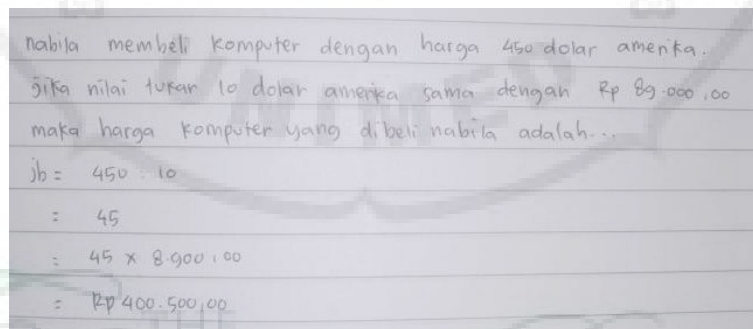 nabila membeli komputer dengan harga 450 dolar amerika.
jika nilai tukar 10 dolar amerika sama dengan Rp 89.000,00
maka harga komputer yang dibeli nabila adalah...
jb = 450 : 10
= 45
= 45 x 8.900,00
= Rp 400.500,00
UNIMED
THE